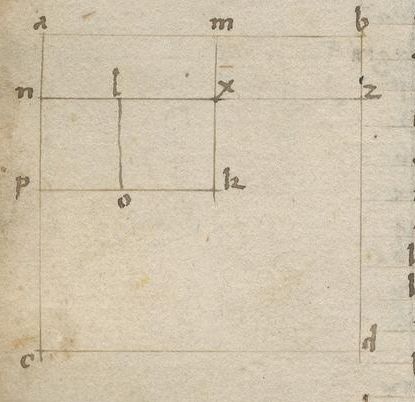 a m b
n l x z
p o k
c d